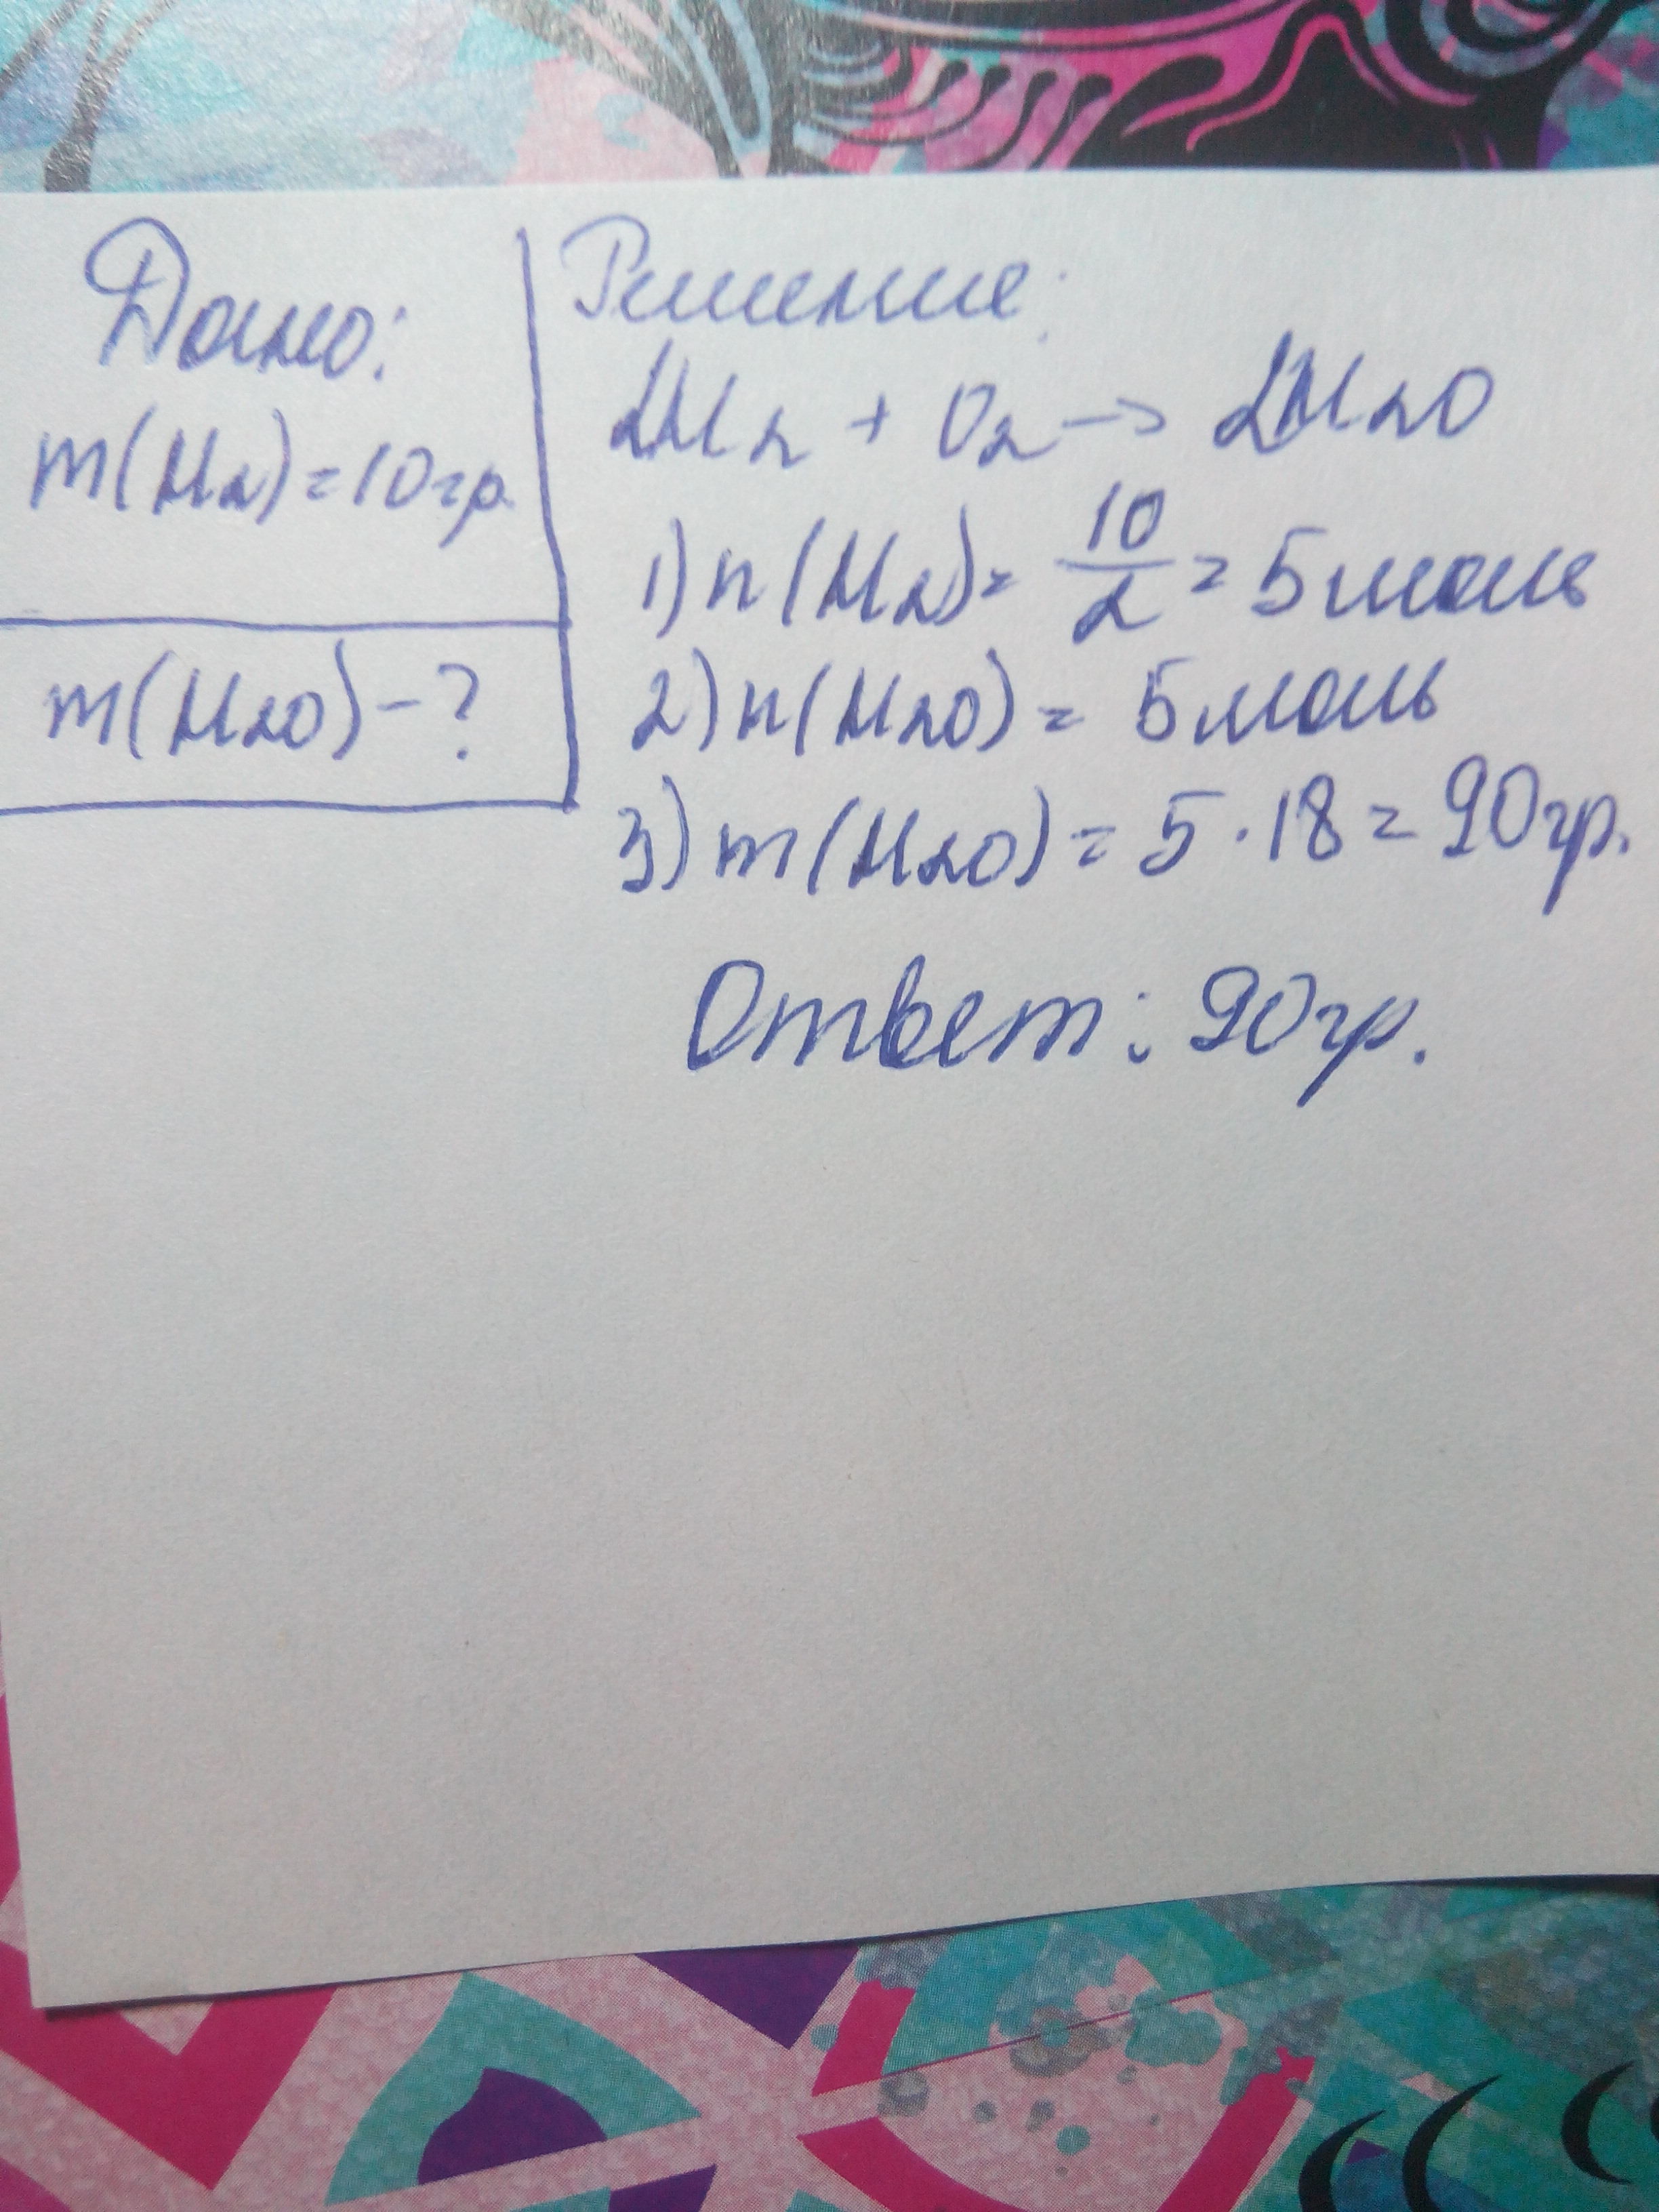 Дано:
m(H2)=10гр
m(H2O)-?
Решение:
2H2 + O2 → 2H2O
1) n(H2)= 10/2 = 5моль
2) n(H2O) = 5моль
3) m(H2O) = 5·18 = 90гр.
Ответ: 90гр.